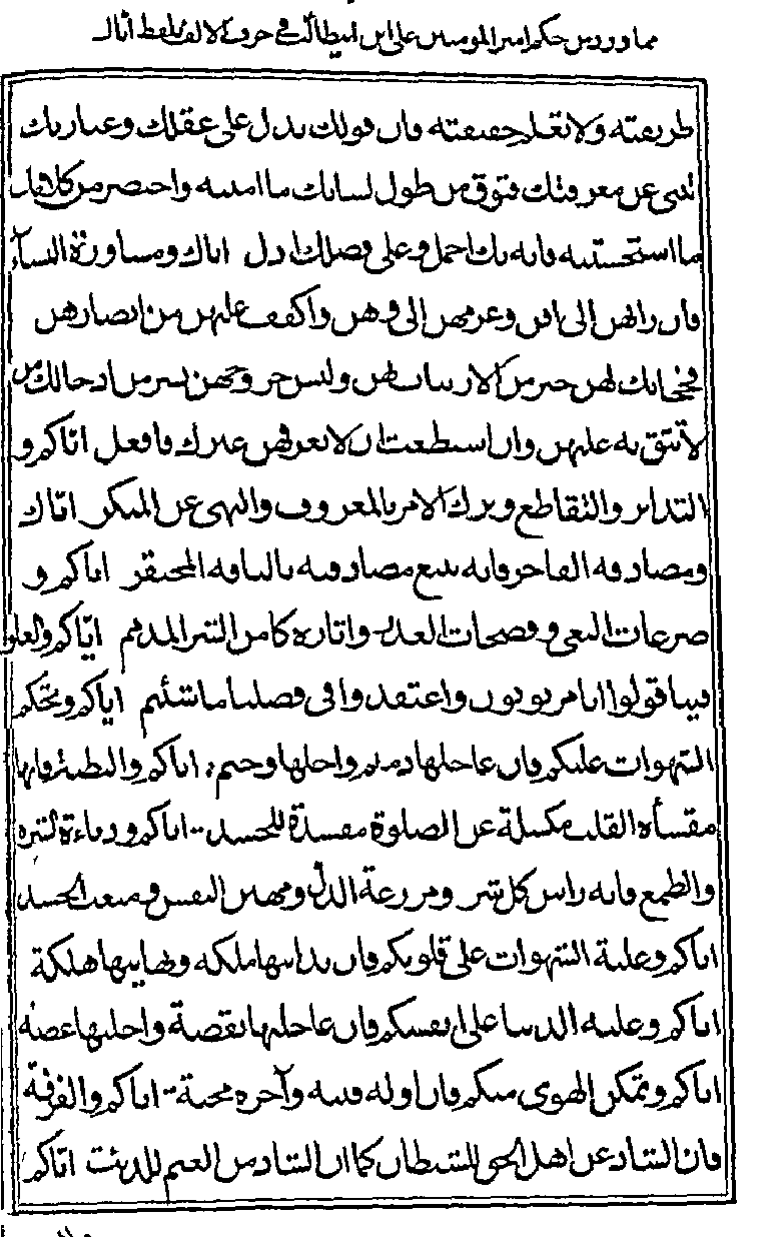 مما ورد من حكم امير المومنين على ابن ابيطالب في حرف الالف بلفظ اياك
طريقته ولا تعلم حقيقته فان قولك يدل على عقلك وعبارتك
تنبى عن معرفتك فتوق من طول لسانك ما امنته واختصر من كلامك
ما استحسنته فانه بك اجمل وعلى فضلك ادل اياك ومشاورة النسآء
فان رايهن الى افن وعزمهن الى وهن واكفف عليهن من ابصارهن
فحجابك لهن خير من الارتياب بهن وليس خروجهن بشر من ادخالك من
لا تثق به عليهن وان استطعت ان لا يعرفهن غيرك فافعل اياكم و
التدابر والتقاطع وترك الامر بالمعروف والنهى عن المنكر اياك
ومصادقة الفاجر فانه يبيع مصادقه بالتافه المحتقر اياكم و
صرعات البغى وفضحات الغدر واثارة كامن الشر المذمم اياكم والغلو
فينا قولوا انا مربوبون واعتقدوا فى فضلنا ما شئتم اياكم وتحكم
الشهوات عليكم فان عاجلها ذميم واجلها وخيم اياكم والبطنة فانها
مقسأة القلب مكسلة عن الصلوة مفسدة للجسد اياكم ودناءة الشره
والطمع فانه راس كل شر ومزرعة الذل ومهين النفس ومتعب الجسد
اياكم وغلبة الشهوات على قلوبكم فان بدايتها ملكه ونهايتها هلكة
اياكم وغلبه الدنيا على انفسكم فان عاجلها نغصة واجلها غصه
اياكم وتمكن الهوى منكم فان اوله فتنه وآخره محنة اياكم والفرقة
فان الشاذ عن اهل الحق للشيطان كما ان الشاذ من الغنم للذئب اياكم